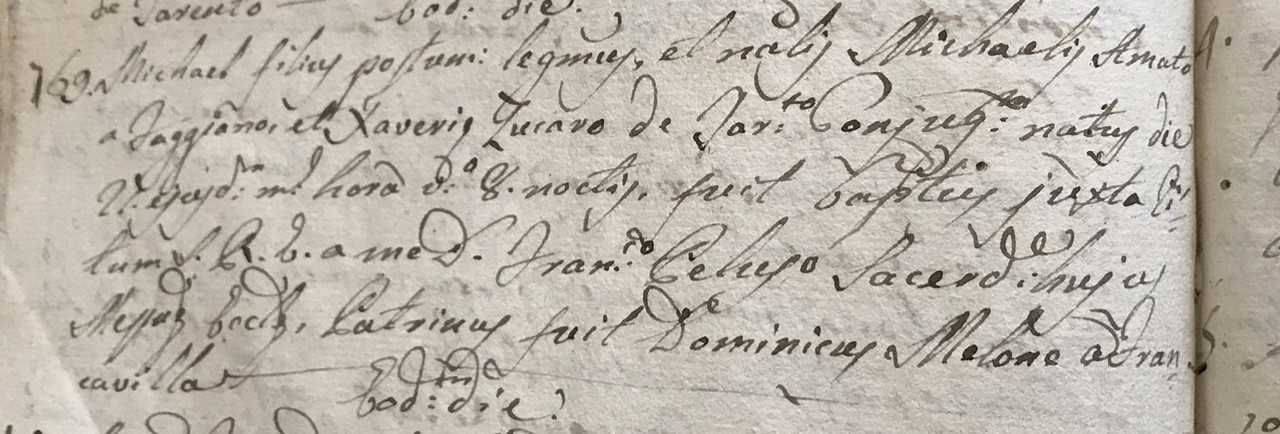 de Tarento — Eod: die.
169. Michael filius postum: legmus, et nalis Michaelis Amato
a Faggiano, et Xaveriæ Zucaro de Tar:to Conjug: natus die
ejusd:m m: hora d:a 8. noctis, fuit baptus juxta Ri-
tum S. R. E. a me D. Fran:co Peluso Sacerd:e hujus
Eccle, Patrinus fuit Dominicus Melone a Fran
cavilla —
Eod: die.